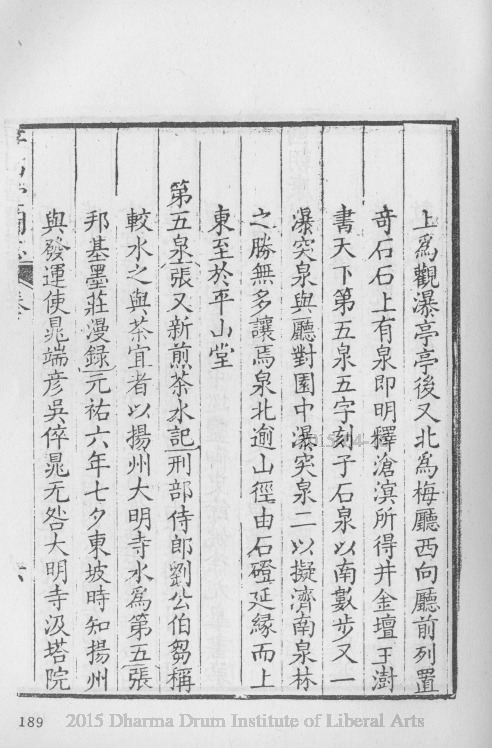 上爲觀瀑亭亭後又北爲梅廳西向廳前列置
奇石石上有泉即明釋滄溟所得井金壇王澍
書天下第五泉五字刻于石泉以南數步又一
瀑突泉與廳對園中瀑突泉二以擬濟南泉林
之勝無多讓焉泉北逾山徑由石磴延緣而上
東至於平山堂
第五泉張又新煎茶水記刑部侍郎劉公伯芻稱
較水之與茶宜者以揚州大明寺水爲第五張
邦基墨莊漫錄元祐六年七夕東坡時知揚州
與發運使晁端彥吳倅晁无咎大明寺汲塔院
189
2015 Dharma Drum Institute of Liberal Arts